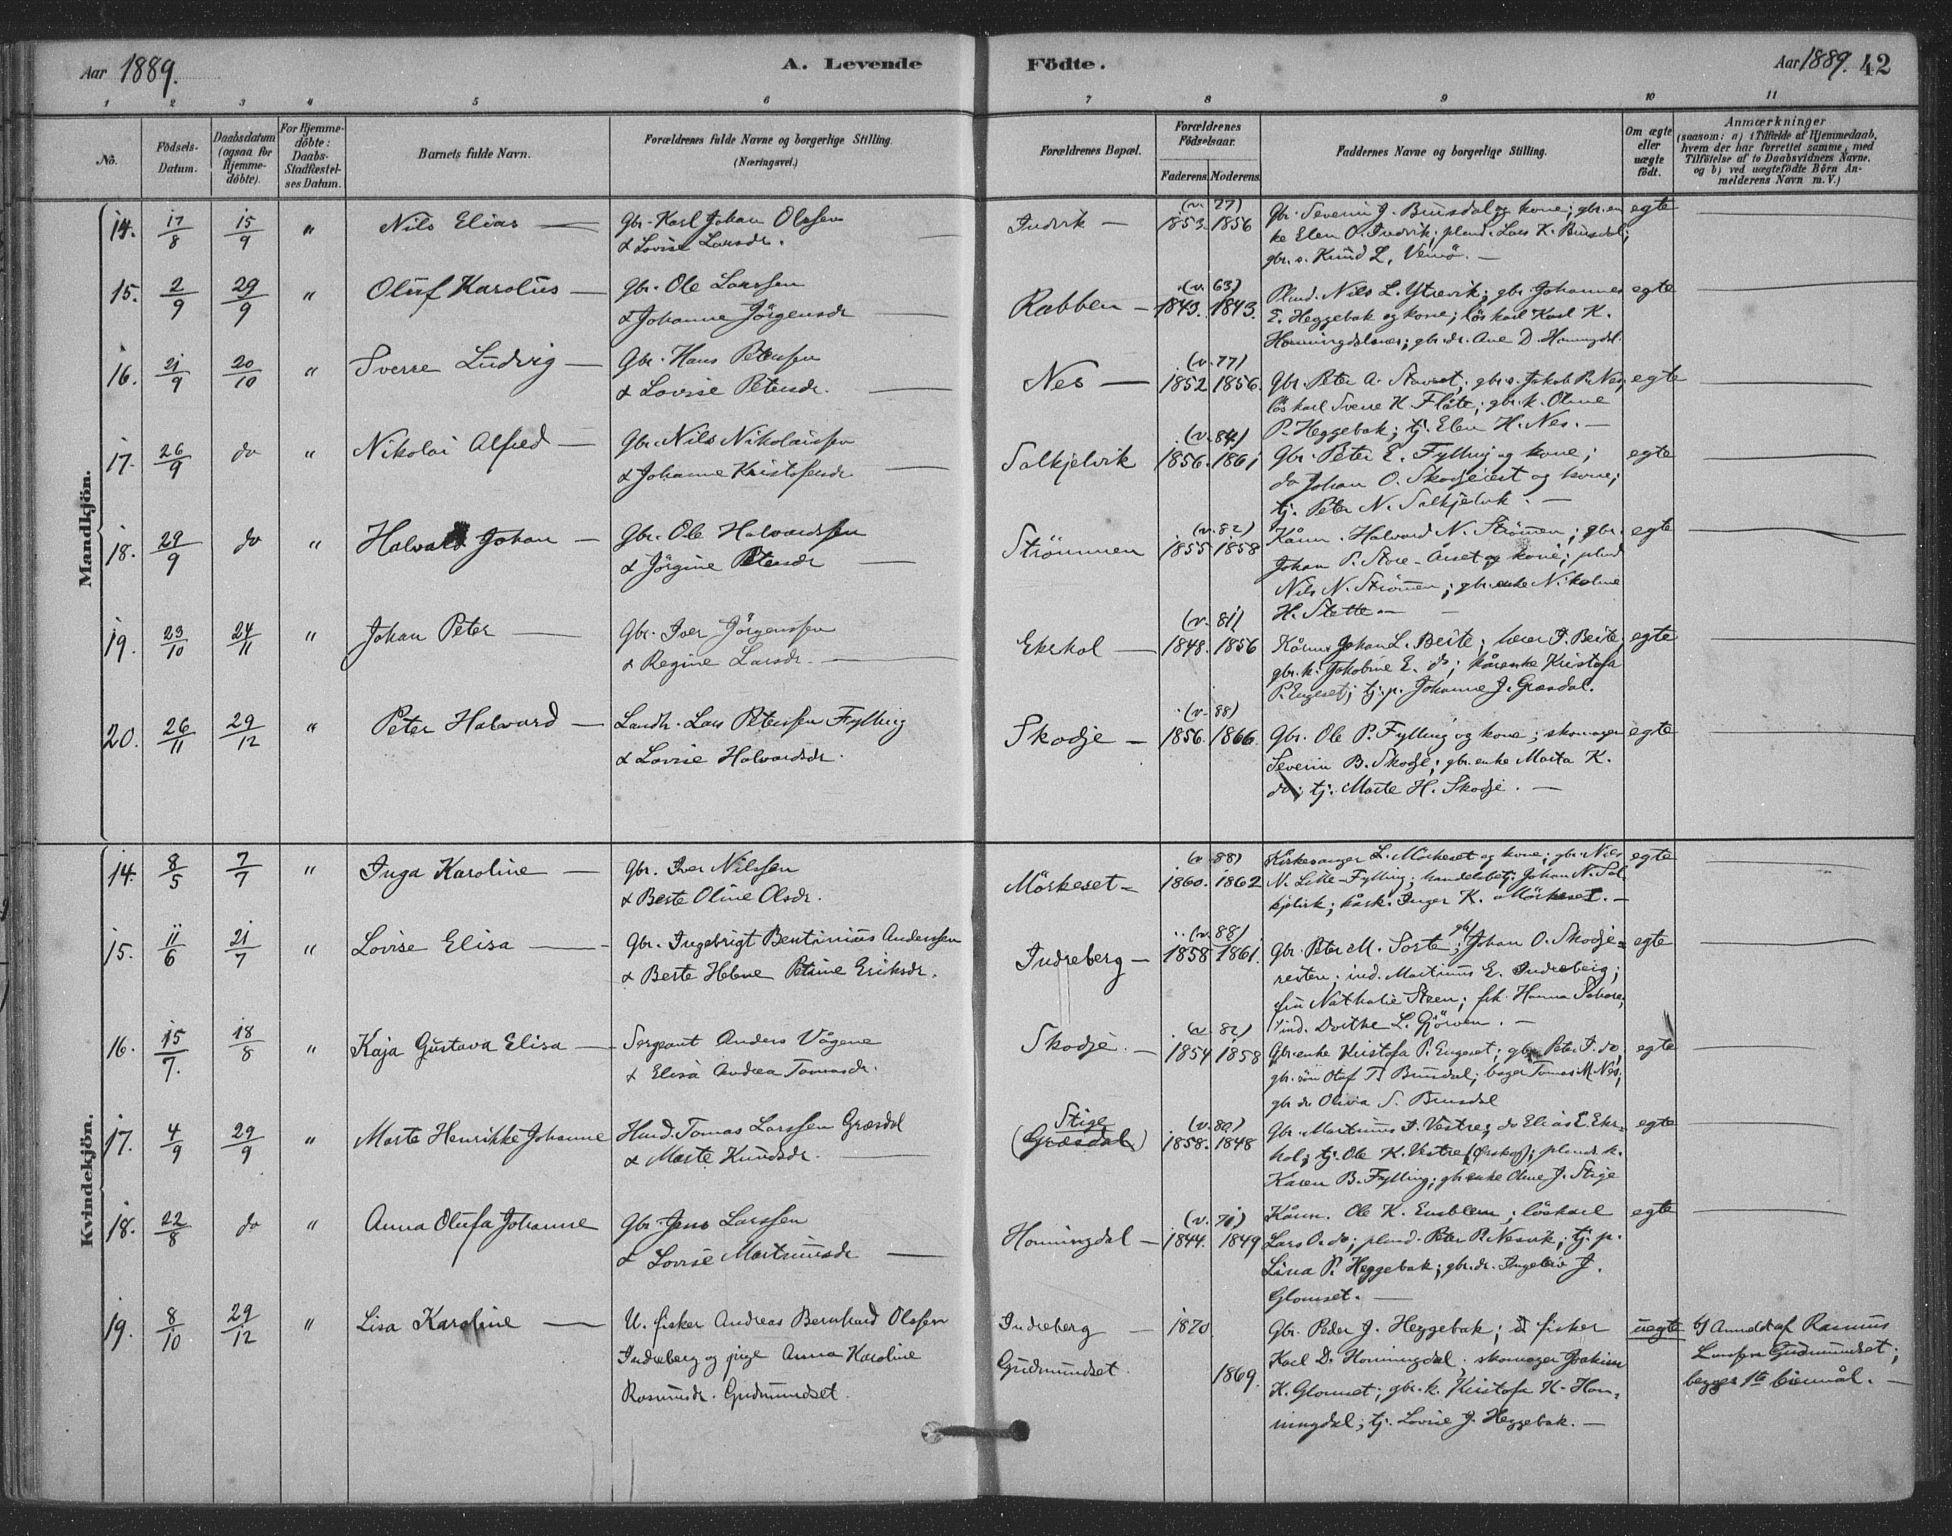 Aar 1889.
A. Levende
Födte.
Aar 1889. 42
1 2 3 4 5 6 7 8 9 10 11
No.
Födsels-Datum.
Daabsdatum (ogsaa for Hjemme-döbte).
For Hjemme-döbte: Daabs-Stadfæstel-ses Datum.
Barnets fulde Navn.
Forældrenes fulde Navne og borgerlige Stilling. (Næringsvei.)
Forældrenes Bopæl.
Forældrenes Födselsaar.
Faderens. Moderens.
Faddernes Navne og borgerlige Stilling.
Om ægte eller uægte födt.
Anmærkninger
(saasom: a) i Tilfælde af Hjemmedaab, hvem der har forrettet samme, med Tilföielse af to Daabsvidners Navne, og b) ved uægtefödte Börn An-melderens Navn m. V.)
Mandkjön.
14. 17/8 15/9 " Nils Elias — Gbr. Karl Johan Olssen
& Lovise Larsdr. —
Indvik — (v. 77) 1853. 1856
Gbr. Severin J. Brusdal og kone; gbr. en
ke Elen O. Indvik; plend. Lars K. Brusdal;
gbr. s. Knud L. —
egte
15. 2/9 29/9 " Oluf Karolius — Gbr. Ole Larssen
& Johanne Jörgensdr —
Rabben — (v. 63) 1843. 1843.
Plend. Nils L. Ytrevik; gbr. Johannes
E. Heggebak og kone; löskarl Karl K.
Honningdalsnes; gbr. dr. Ane D. Honingdal.
egte
16. 21/9 20/10 " Sverre Ludvig — Gbr. Hans Peterssen
& Lovise Petersdr. —
Nes — (v. 77) 1852 1856.
Gbr. Peter A. Stavset; gbr. s. Jakob P. Nes;
löskarl Sverre K. Flåte; gbr. k. Oline
P. Heggebak; tj. Elen H. Nes. —
egte
17. 26/9 do " Nikolai Alfred — Gbr. Nils Nikolaissen
& Johanne Kristofersdr —
Salkjelvik (v. 84) 1856. 1861
Gbr. Peter E. Fylling og kone;
do Johan O. Skodjereit og kone;
tj. Peter N. Salkjelvik. —
egte
18. 29/9 do " Halvard Johan — Gbr. Ole Halvardssen
& Jörgine Petersdr —
Strömmen (v. 82) 1855 1858
Kårm. Halvard N. Strömen; gbr.
Johan P. Store-Aaset og kone; plend
Nils N. Strömen; gbr. enke Nikoline
H. Stette —
egte
19. 23/10 24/11 " Johan Peter — Gbr. Iver Jörgenssen
& Regine Larsdr. —
Ekrhol — (v. 81) 1848. 1856
Kårm. Johan L. Beite; lærer I. Beite;
gbr. k. Jakobine E. do; kårenke Kristofa
P. Engeset; tj. p. Johanne J. Græsdal.
egte
20. 26/11 29/12 " Peter Halvard — Landh. Lars Peterssen Fylling
& Lovise Halvardsdr.
Skodje — (v. 88) 1856. 1866.
Gbr. Ole P. Fylling og kone; skomager
Severin B. Skodje; gbr. enke Marta K.
do; tj. Marte H. Skodje. —
egte
Kvindekjön.
14. 8/5 7/7 " Inga Karoline — Gbr. Iver Nilssen
& Berte Oline Olsdr.
Mörkeset — (v. 88) 1860. 1862
Kirkesanger L. Mörkeset og kone; gbr. Nils
N. Lille-Fylling; handelsbetj. Johan N. Sal
kjelvik; kårk. Inger K. Mörkeset. —
egte
15. 11/6 21/7 " Lovise Elisa — Gbr. Ingebrigt Bentinius Anderssen
& Berte Helene Petrine Eriksdr.
Indreberg — (v. 88) 1858 1861.
Gbr. Peter M. Sorte; gbr Johan O. Skodje=
reiten; ind. Martinus E. Indreberg;
fru Nathalie Steen; frk. Hanna
ind. Dorthe L. Gjörven. —
egte
16. 15/7. 18/8 " Kaja Gustava Elisa — Sergeant Anders Vågene
& Elisa Andrea Tomasdr.
Skodje. — (v. 82) 1854 1858
Gbr. enke Kristofa P. Engeset; gbr. Peter T. do;
gbr. sön Olaf T. Brusdal; bager Tomas M. Nes;
gbr. dr. Olivia S. Brusdal
egte
17. 4/9 29/9 " Marte Henrikke Johanne Husd. Tomas Larssen Græsdal
& Marte Knudsdr. —
Stige
(Græsdal) (v. 80) 1858. 1848
Gbr. Martinus I. Vestre; do Elias E. Ekr-
hol; tj. Ole K. Vestre (Örskog); plends k.
Karen B. Fylling; gbr enke Oline J. Stige
egte
18. 22/8 do " Anna Olufa Johanne Gbr. Jens Larssen
& Lovise Martinusdr —
Honningdal — (v. 70) 1844. 1849
Kårm. Ole K. Emblem; löskarl
Lars O. do; plend. Peter P. Nesvik; tj. p.
Lina P. Heggebak; gbr. dr. Ingebor J.
Glomset. —
egte
19. 8/10 29/12 " Lisa Karoline — U. fisker Andreas Bernhard Olssen
Indreberg og pige Anna Karoline
Rasmusdr. Gudmundset.
Indreberg — 1870
Gudmundset. 1869.
Gbr. Peder J. Heggebak; fisker
Karl D. Honningdal; skomager Joakim
K. Glomset; gbr. k. Kristofa K. Hon-
ningdal; tj. Lovise J. Heggebak. —
uegte
Anmeldt af Rasmus
Larssen Gudmundset;
begges 1ste leiermål. —